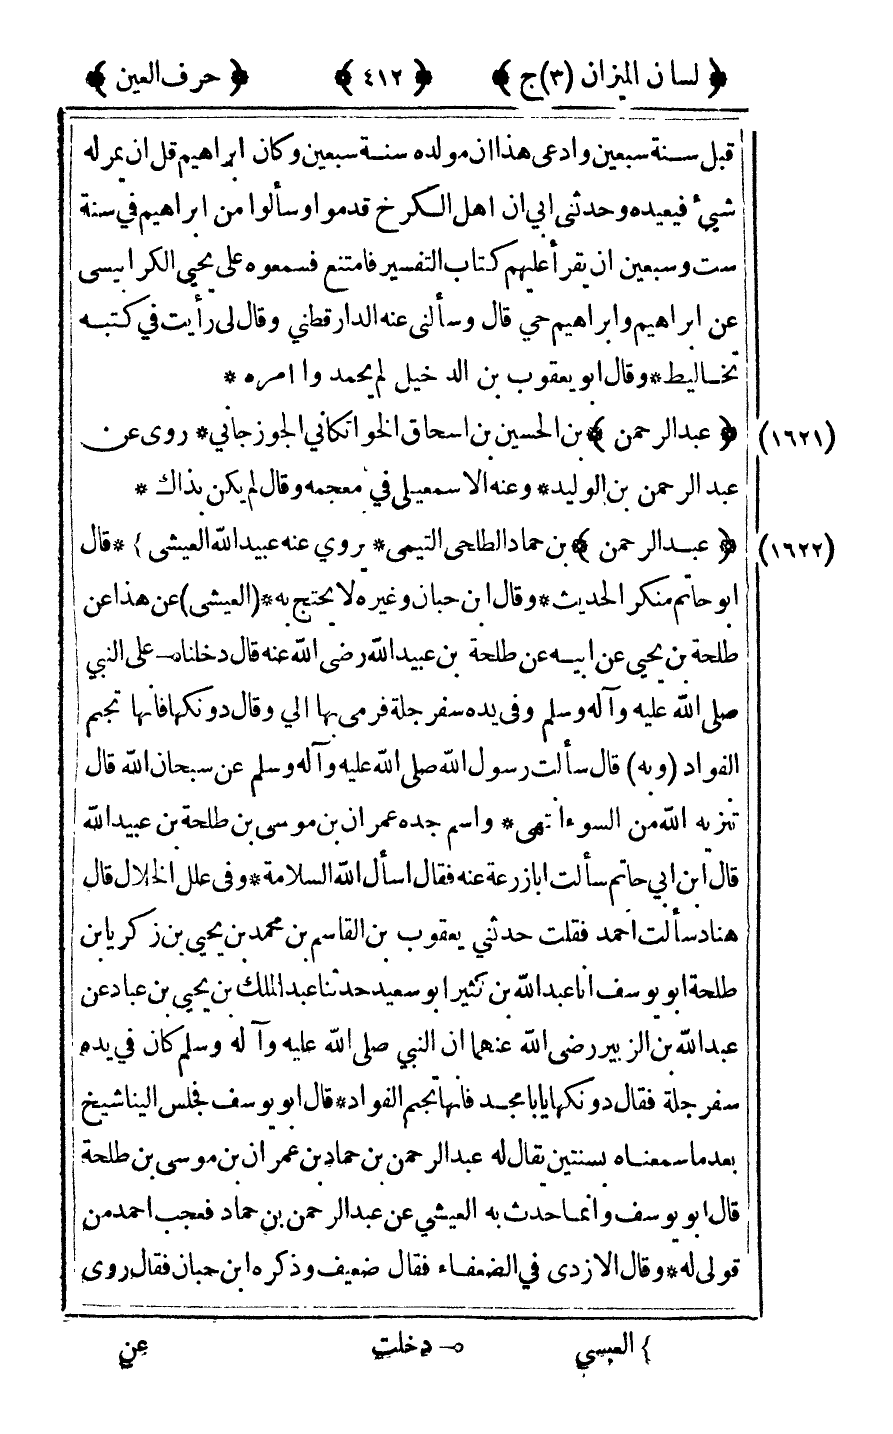 ﴿ لسان الميزان (٣)ج ﴾ ﴿ ٤١٢ ﴾ ﴿ حرف العين ﴾
قبل سنة سبعين وادعى هذا ان مولده سنة سبعين وكان ابراهيم قل ان يمر له
شيئ فيعيده وحدثنى ابي ان اهل الكرخ قدموا وسألوا من ابراهيم في سنة
ست وسبعين ان يقرأ عليهم كتاب التفسير فامتنع فسمعوه على يحيى الكرابيسى
عن ابراهيم وابراهيم حي قال وسألنى عنه الدارقطني وقال لى رأيت في كتبه
تخاليط * وقال ابو يعقوب بن الدخيل لم يحمدوا امره *
(١٦٢١) ﴿ عبد الرحمن ﴾ بن الحسين بن اسحاق الخواتكاني الجوزجاني * روى عن
عبد الرحمن بن الوليد * وعنه الاسمعيلى في معجمه وقال لم يكن بذاك *
(١٦٢٢) ﴿ عبد الرحمن ﴾ بن حماد الطلحى التيمى * يروي عنه عبيد الله العيشى } * قال
ابو حاتم منكر الحديث * وقال ابن حبان وغيره لا يحتج به * (العيشى) عن هذا عن
طلحة بن يحيى عن ابيه عن طلحة بن عبيد الله رضى الله عنه قال دخلناه— على النبي
صلى الله عليه وآله وسلم وفى يده سفرجلة فرمى بها الي وقال دونكها فانها تجم
الفواد (وبه) قال سألت رسول الله صلى الله عليه وآله وسلم عن سبحان الله قال
تنزيه الله من السوء انتهى * واسم جده عمران بن موسى بن طلحة بن عبيد الله
قال ابن ابي حاتم سألت ابا زرعة عنه فقال اسأل الله السلامة * وفى علل الخلال قال
هناد سألت احمد فقلت حدثني يعقوب بن القاسم بن محمد بن يحيى بن زكريا بن
طلحة ابو يوسف انا عبد الله بن كثير ابو سعيد حدثنا عبد الملك بن يحيى بن عباد عن
عبد الله بن الزبير رضى الله عنهما ان النبي صلى الله عليه وآله وسلم كان في يده
سفرجلة فقال دونكها يا با محمد فانها تجم الفواد * قال ابو يوسف فجلس الينا شيخ
بعد ما سمعناه بسنتين يقال له عبد الرحمن بن حماد بن عمران بن موسى بن طلحة
قال ابو يوسف وانما حدث به العيشي عن عبد الرحمن بن حماد فعجب احمد من
قولى له * وقال الازدى في الضعفاء فقال ضعيف وذكره ابن حبان فقال روى
} العبسي ه— دخلت عن